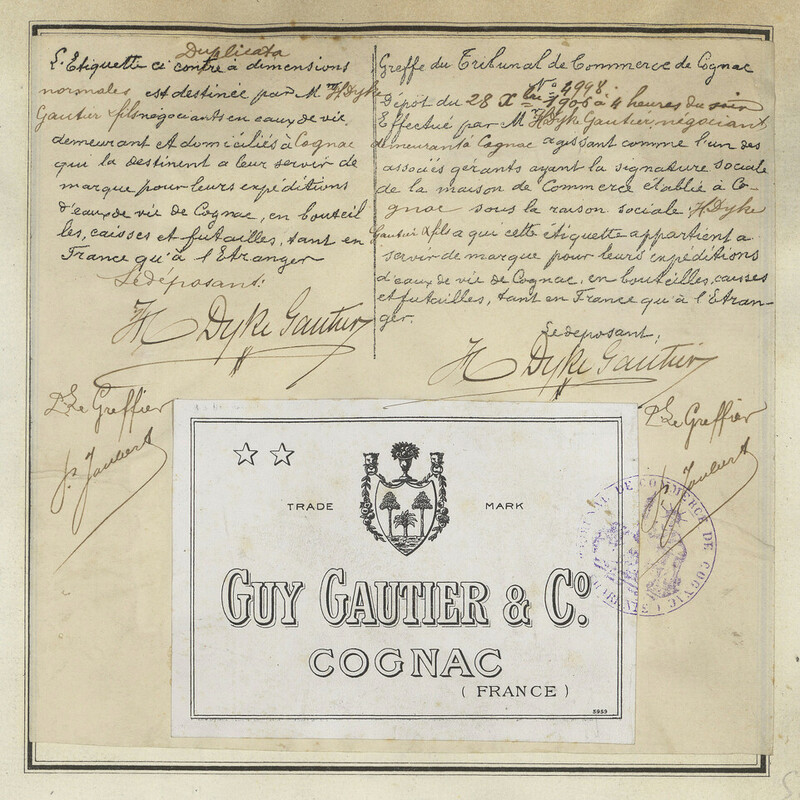 Duplicata
L'Etiquette ci contre à dimensions
normales est destinée par M H Dyke
Gautier & fils négociants en eaux de vie,
demeurant et domiciliés à Cognac
qui la destinent a leur servir de
marque pour leurs expéditions
d'eaux de vie de Cognac, en bouteil
les, caisses et futailles, tant en
France qu'à l'Etranger
Le déposant:
H Dyke Gautier
Le Greffier
p. Joubert
Greffe du Tribunal de Commerce de Cognac
N° 4998
Dépôt du 28 Xbre 1906 à 4 heures du soir
Effectué par M H Dyke Gautier, négociant
demeurant à Cognac agissant comme l'un des
associés gérants ayant la signature sociale
de la maison de Commerce établie à Co-
gnac sous la raison sociale H Dyke
Gautier & fils a qui cette étiquette appartient a
servir de marque pour leurs expéditions
d'eaux de vie de Cognac, en bouteilles, caisses
et futailles, tant en France qu'à l'Etran-
ger.
Le déposant:
H Dyke Gautier
Le Greffier
p. Joubert
TRIBUNAL DE COMMERCE DE COGNAC
TRADE MARK
GUY GAUTIER & Cº.
COGNAC
( FRANCE )
5959